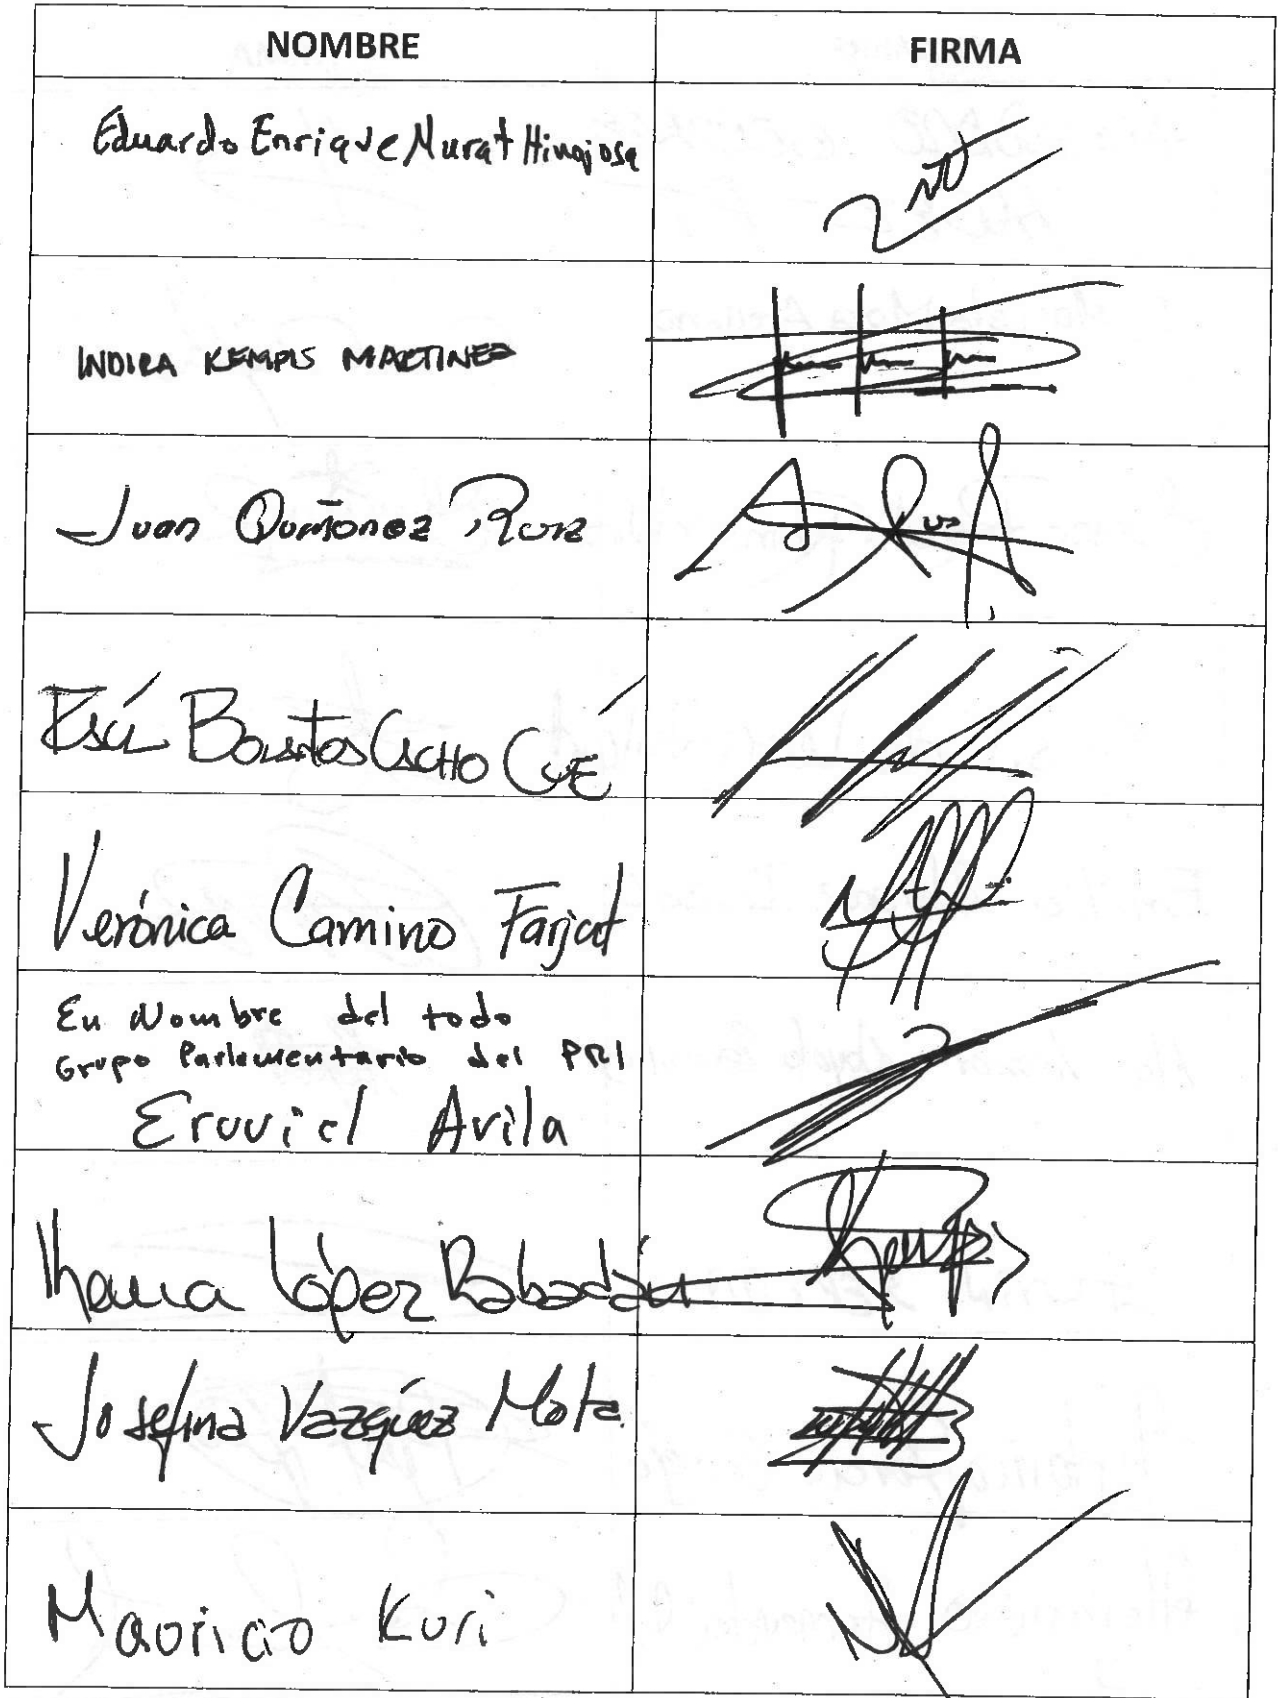 NOMBRE FIRMA
Eduardo Enrique Murat Hinojosa
INDIRA KEMPIS MARTINEZ
Juan Quiñonez Ruiz
Bonitos Cué
Verónica Camino Farjat
En Nombre del todo
Grupo Parlamentario del PRI
Eruviel Avila
Kenia López Rabadán
Josefina Vazquez Mota
Mauricio Kuri